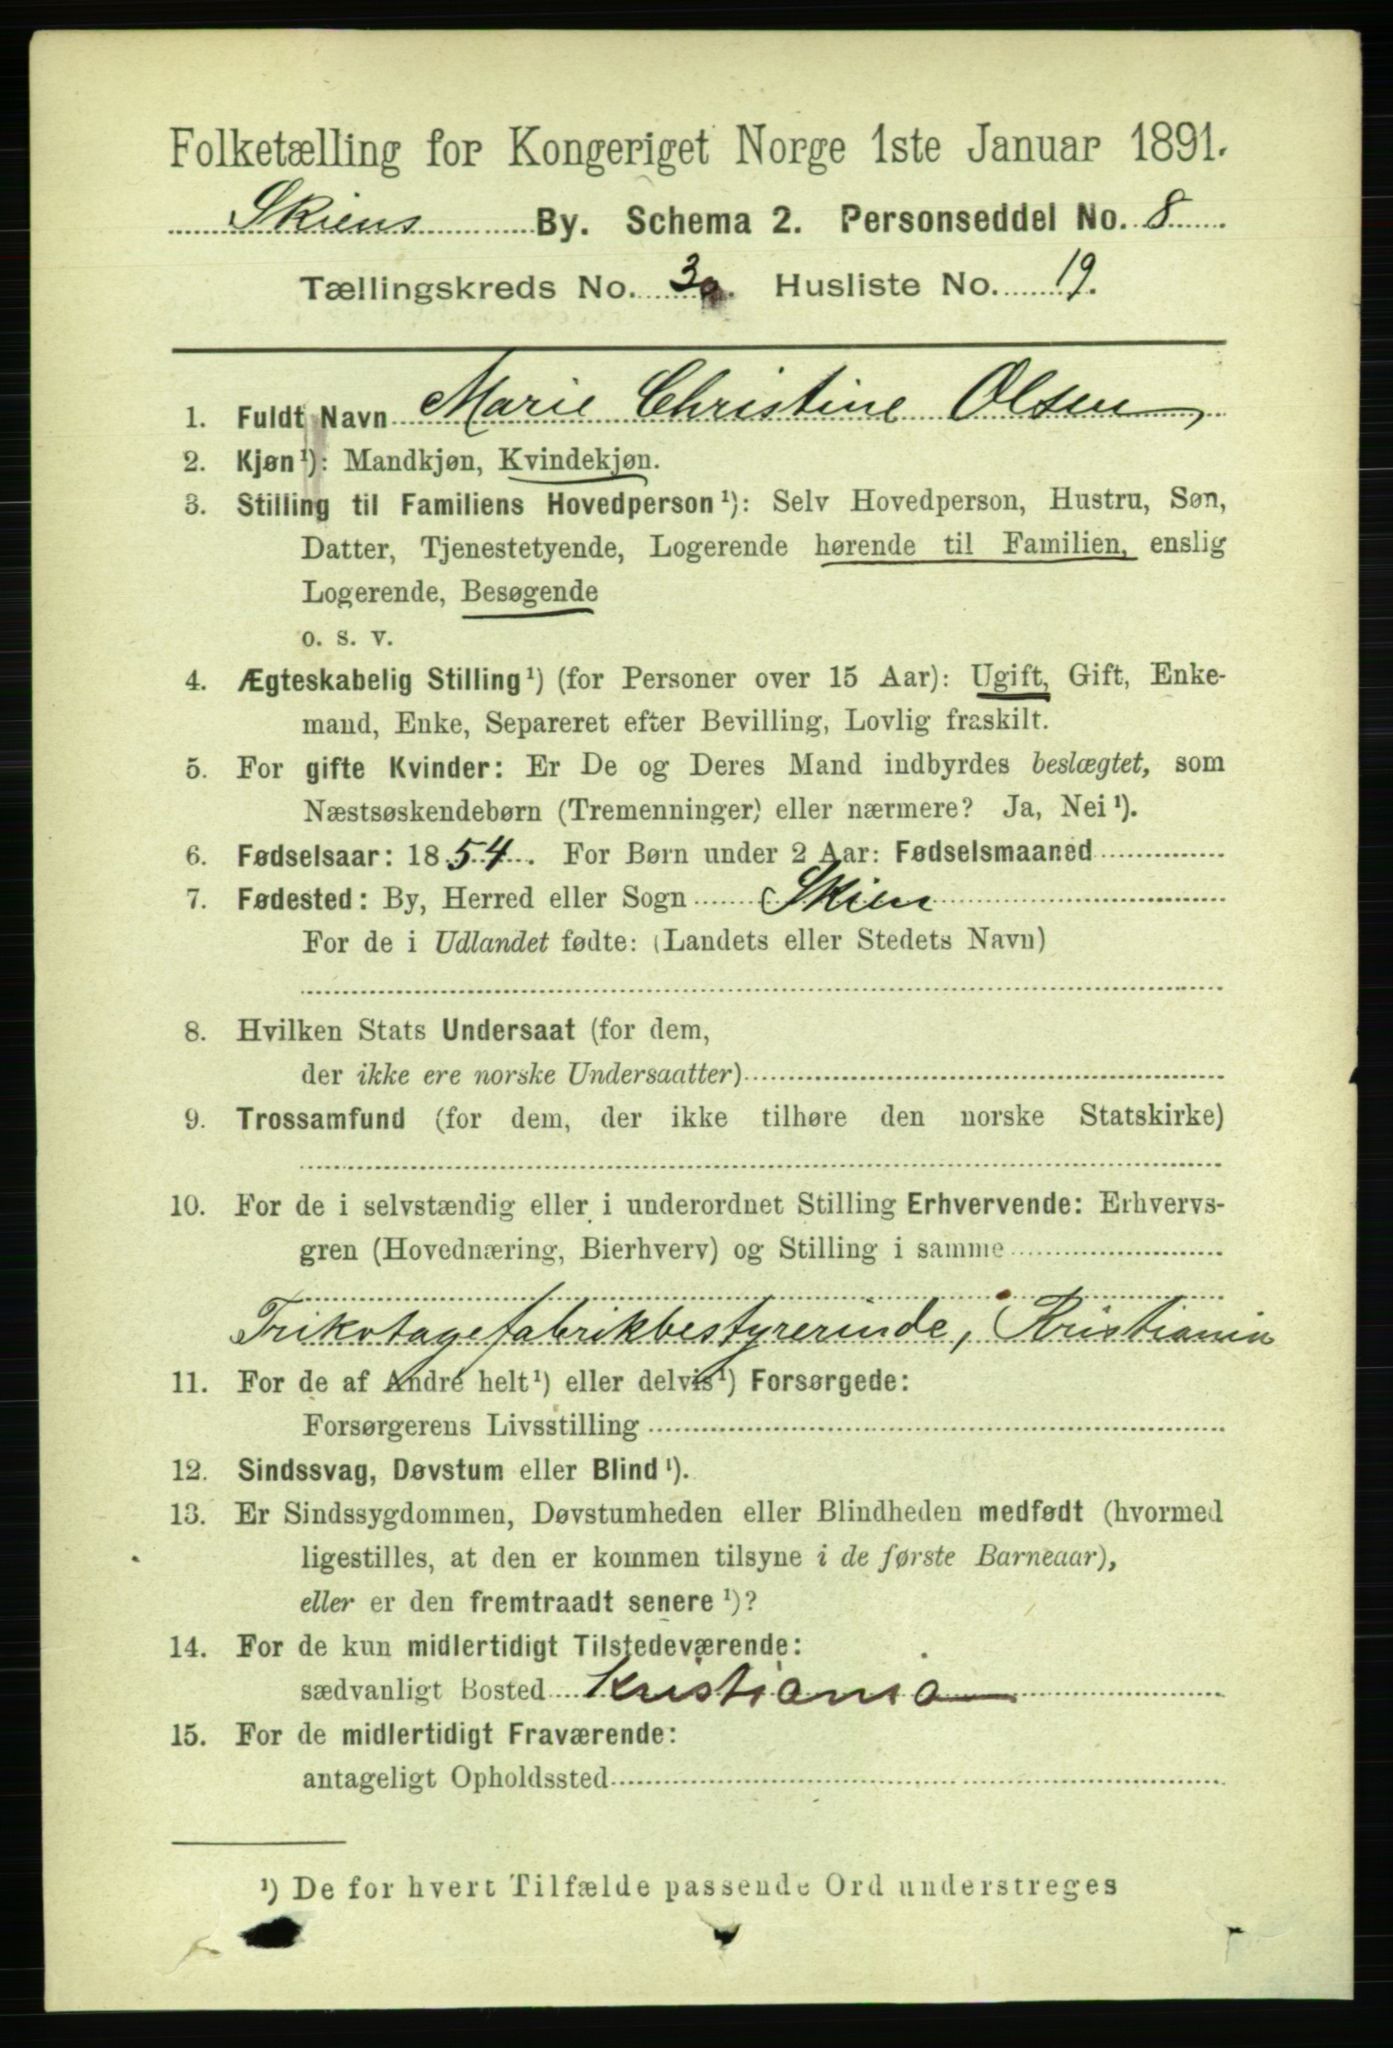 Folketælling for Kongeriget Norge 1ste Januar 1891.
Skiens By. Schema 2. Personseddel No. 8
Tællingskreds No. 3a. Husliste No. 19.
1. Fuldt Navn Marie Christine Olsen
2. Kjøn¹): Mandkjøn, Kvindekjøn.
3. Stilling til Familiens Hovedperson¹): Selv Hovedperson, Hustru, Søn,
Datter, Tjenestetyende, Logerende hørende til Familien, enslig
Logerende, Besøgende
o. s. v.
4. Ægteskabelig Stilling¹) (for Personer over 15 Aar): Ugift, Gift, Enke-
mand, Enke, Separeret efter Bevilling, Lovlig fraskilt.
5. For gifte Kvinder: Er De og Deres Mand indbyrdes beslægtet, som
Næstsøskendebørn (Tremenninger) eller nærmere? Ja, Nei¹).
6. Fødselsaar: 1854. For Børn under 2 Aar: Fødselsmaaned
7. Fødested: By, Herred eller Sogn Skien
For de i Udlandet fødte: (Landets eller Stedets Navn)
8. Hvilken Stats Undersaat (for dem,
der ikke ere norske Undersaatter)
9. Trossamfund (for dem, der ikke tilhøre den norske Statskirke)
10. For de i selvstændig eller i underordnet Stilling Erhvervende: Erhvervs-
gren (Hovednæring, Bierhverv) og Stilling i samme
Trikotagefabrikbestyrerinde, Kristiania
11. For de af Andre helt¹) eller delvis¹) Forsørgede:
Forsørgerens Livsstilling
12. Sindssvag, Døvstum eller Blind¹).
13. Er Sindssygdommen, Døvstumheden eller Blindheden medfødt (hvormed
ligestilles, at den er kommen tilsyne i de første Barneaar),
eller er den fremtraadt senere¹)?
14. For de kun midlertidigt Tilstedeværende:
sædvanligt Bosted Kristiania
15. For de midlertidigt Fraværende:
antageligt Opholdssted
¹) De for hvert Tilfælde passende Ord understreges